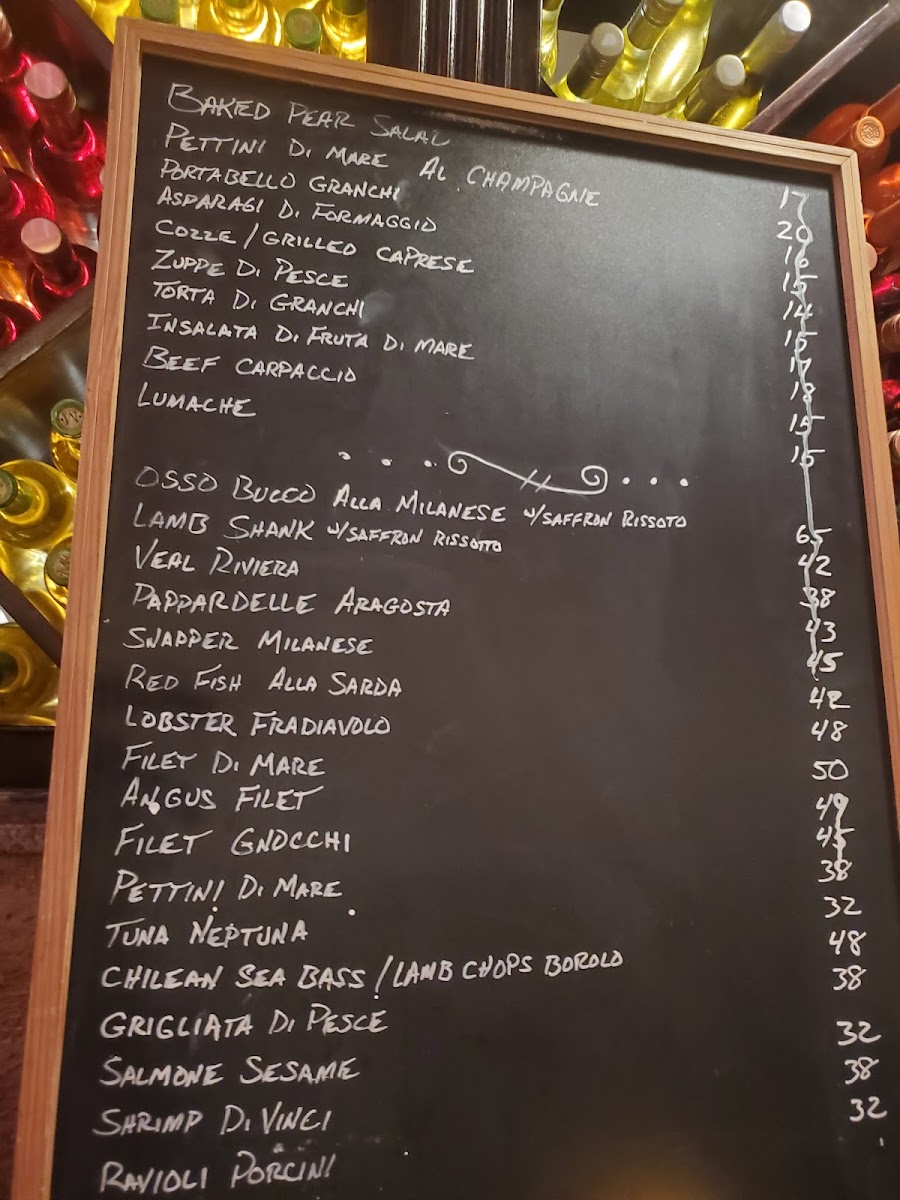 BAKED PEAR SALAD 17
PETTINI DI MARE AL CHAMPAGNE 20
PORTABELLO GRANCHI 16
ASPARAGI DI FORMAGGIO 15
COZZE / GRILLED CAPRESE 14
ZUPPE DI PESCE
TORTA DI GRANCHI 17
INSALATA DI FRUTA DI MARE 18
BEEF CARPACCIO 15
LUMACHE
OSSO BUCCO ALLA MILANESE W/SAFFRON RISSOTO 65
LAMB SHANK W/SAFFRON RISSOTTO 42
VEAL RIVIERA 38
PAPPARDELLE ARAGOSTA 43
SNAPPER MILANESE 45
RED FISH ALLA SARDA 42
LOBSTER FRADIAVOLO 48
FILET DI MARE 50
ANGUS FILET 49
FILET GNOCCHI 45
PETTINI DI MARE 38
TUNA NEPTUNA 32
CHILEAN SEA BASS / LAMB CHOPS BOROLO 48
GRIGLIATA DI PESCE 38
SALMONE SESAME 32
SHRIMP DI VINCI 38
RAVIOLI PORCINI 32